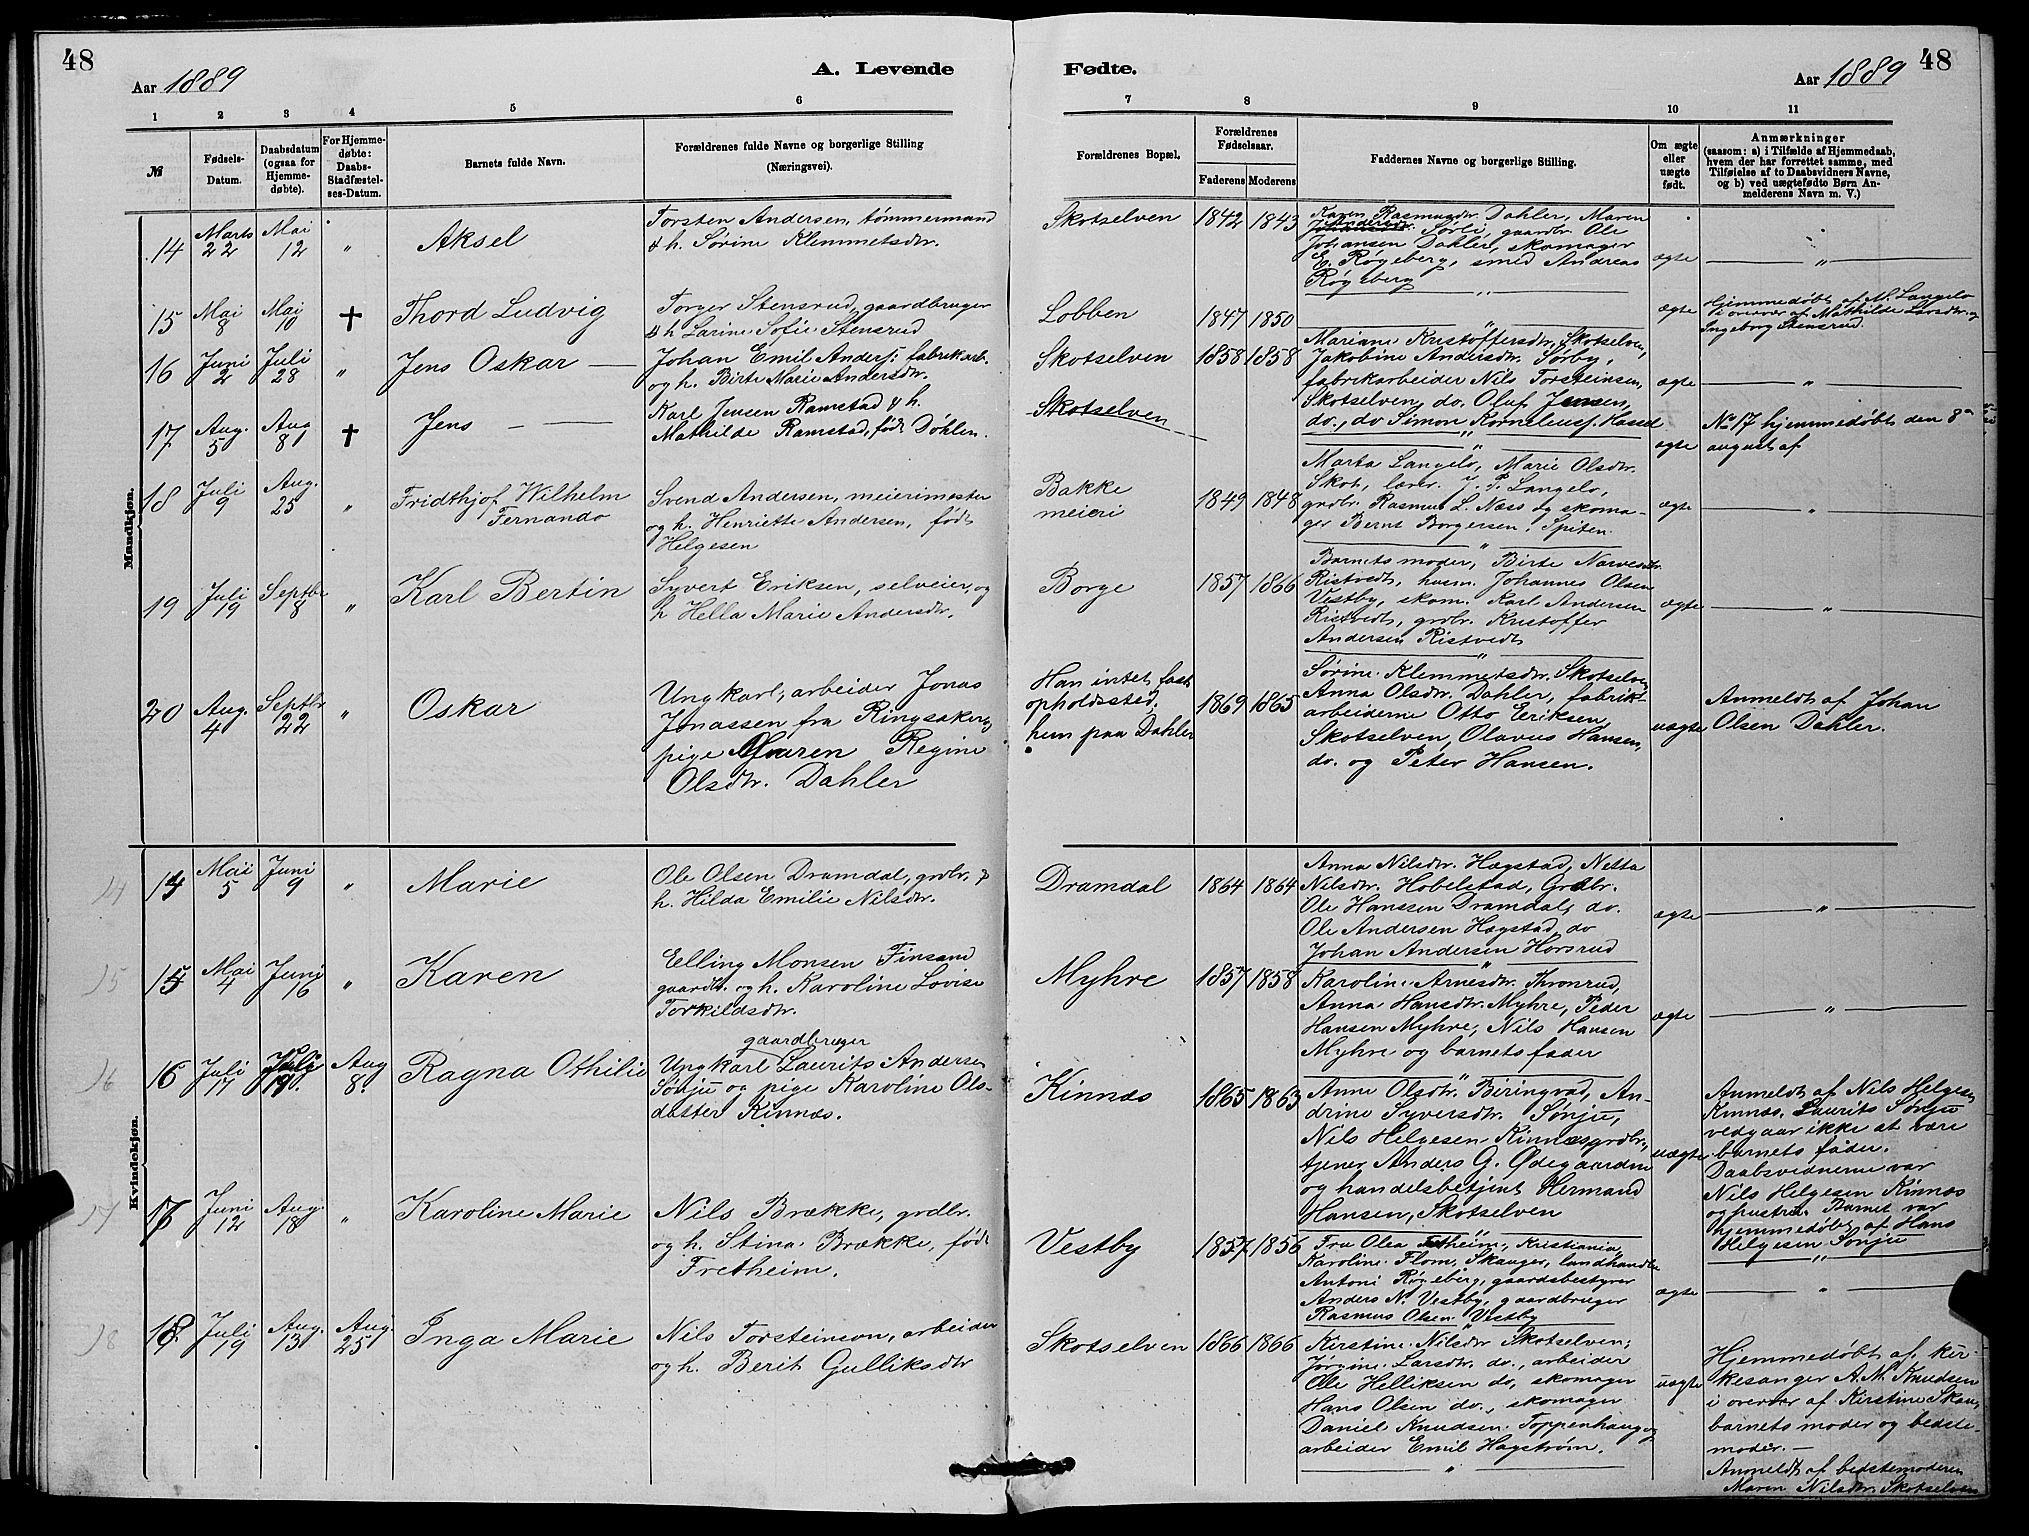 48
Aar 1889
A. Levende
Fødte.
Aar 1889
48
1
2
3
4
5
6
7
8
9
10
11
№
Fødsels-
Datum.
Daabsdatum
(ogsaa for
Hjemme-
døbte).
For Hjemme-
døbte:
Daabs-
Stadfæstel-
ses-Datum.
Barnets fulde Navn.
Forældrenes fulde Navne og borgerlige Stilling
(Næringsvei).
Forældrenes Bopæl.
Forældrenes
Fødselsaar.
Faderens
Moderens
Faddernes Navne og borgerlige Stilling.
Om ægte
eller
uægte
født.
Anmærkninger
(saasom: a) i Tilfælde af Hjemmedaab,
hvem der har forrettet samme, med
Tilføielse af to Daabsvidners Navne,
og b) ved uægtefødte Børn An-
melderens Navn m. V.)
Mandkjøn.
14
Marts
22
Mai
12
"
Aksel
Torsten Andersen, tømmermand
& h. Sørine Klemmetsdtr.
Skotselven
1842
1843
Karen Rasmusdtr. Dahler, Maren
Sørli, gaardbr. Ole
Johansen Dahler, skomager
E. Røgeberg, smed Andreas
Røgeberg
ægte
"
15
Mai
8
Mai
10
+
Thord Ludvig
Torger Stensrud, gaardbruger
& h Larine Sofie Stensrud
Lobben
1847
1850
"
ægte
Hjemmedøbt af M. Langelo
i overvær af Mathilde Larsdtr. og
Ingeborg Stensrud.
16
Juni
2
Juli
28
"
Jens Oskar
Johan Emil Anders: fabrikarb.
og h. Birte Marie Andersdtr.
Skotselven
1858
1858
Mariane Kristoffersdtr. Skotselven,
Jakobine Andersdtr. Sørby,
fabrikarbeider Nils Torsteinsen,
Skotselven, do. Oluf Jensen,
do., do Simon Kornelius. Hassel
ægte
"
17
Aug.
5
Aug
8
+
Jens
Karl Jensen Ramstad & h.
Mathilde Ramstad, født Døhlen.
Skotselven
"
ægte
No 17 hjemmedøbt den 8de
august af
18
Juli
9
Aug.
25
"
Fridthjof Wilhelm
Fernando
Svend Andersen, meierimester
og h. Henriette Andersen, født
Helgesen
Bakke
meieri
1849
1848
Marta Langelo, Marie Olsdtr.
Skot, lærer J. P. Langelo,
grdbr. Rasmus L. Næss og skoma-
ger Bernt Borgersen, Spiten.
ægte
"
19
Juli
19
Septbr
8
"
Karl Bertin
Syvert Eriksen, selveier, og
h Hella Marie Andersdtr.
Borge
1857
1866
Barnets moder, Birte Narvesdtr.
Ristvedt, husm. Johannes Olsen
Vestby, skom. Karl Andersen
Ristvedt, grdbr. Kristoffer
Andersen Ristvedt
ægte
"
20
Aug.
4
Septbr
22
"
Oskar
Ungkarl, arbeider Jonas
Jonassen fra Ringsaker og
pige Maren Regine
Olsdtr. Dahler
Han intet fast
opholdssted,
hun paa Dahler
1869
1865
Sørine Klemmetsdtr. Skotselven,
Anna Olsdtr. Dahler, fabrik-
arbeiderne Otto Eriksen,
Skotselven, Olavus Hansen,
do. og Peter Hansen.
uægte
Anmeldt af Johan
Olsen Dahler.
Kvindekjøn.
14
Mai
5
Juni
9
"
Marie
Ole Olsen Dramdal, grdbr. &
h. Hilda Emilie Nilsdtr.
Dramdal
1864
1864
Anna Nilsdtr. Hægstad, Netta
Nilsdtr. Hobelstad, Grdbr.
Ole Hanssen Dramdal, do.
Ole Andersen Hægstad, do
Johan Andersen Horsrud
ægte
"
15
Mai
4
Juni
16
"
Karen
Elling Monsen Finsand
gaardb. og h. Karoline Lovise
Torkildsdtr.
Myhre
1857
1858
Karoline Arnesdtr. Thronrud,
Anna Hansdtr. Myhre, Peder
Hansen Myhre, Nils Hansen
Myhre og barnets fader
ægte
"
16
Juli
17
Juli
19.
Aug
8.
Ragna Othilie
gaardbruger
Ungkarl Laurits Andersen
Sønju og pige Karoline Ols-
datter Kinnæs.
Kinnæs
1865
1863
Anne Olsdtr. Biringvad, An-
drine Syversdtr. Sønju,
Nils Helgesen Kinnæs grdbr.,
tjener Anders G. Ødegaarden
og handelsbetjent Hermand
Hansen, Skotselven
uægte
Anmeldt af Nils Helgesen
Kinnæs. Laurits Sønju
vedgaar ikke at være
barnets fader.
Daabsvidnerne var
Nils Helgesen Kinnæs
og hustru. Barnet var
hjemmedøbt af Hans
Helgesen Sønju
17
Juni
12
Aug.
18
"
Karoline Marie
Nils Brække, grdbr.
og h. Stina Brække, født
Fretheim.
Vestby
1857
1856
Fru Olea Fretheim, Kristiania,
Karoline Flom, Skauger, landhandler
Antoni Røgeberg, gaardsbestyrer
Anders N. Vestby, gaardbruger
Rasmus Olsen Vestby
ægte
"
18
Juli
19
Aug.
13
Aug.
25
Inga Marie
Nils Torsteinson, arbeider
og h. Berit Gulliksdtr
Skotselven
1866
1866
Kirstine Nilsdtr Skotselven,
Jørgine Larsdtr. do., arbeider
Ole Helliksen do, skomager
Hans Olsen do., skomager
Daniel Knudsen Toppenhaug og
arbeider Emil Hagstrøm.
"
uægte
Hjemmedøbt af kir-
kesanger A. M. Knudsen
i overvær af Kirstine Skau,
barnets moder og bedste-
moder.
Anmeldt af bedstemoderen
Maren Nilsdtr. Skotselven
14
15
16
17
18